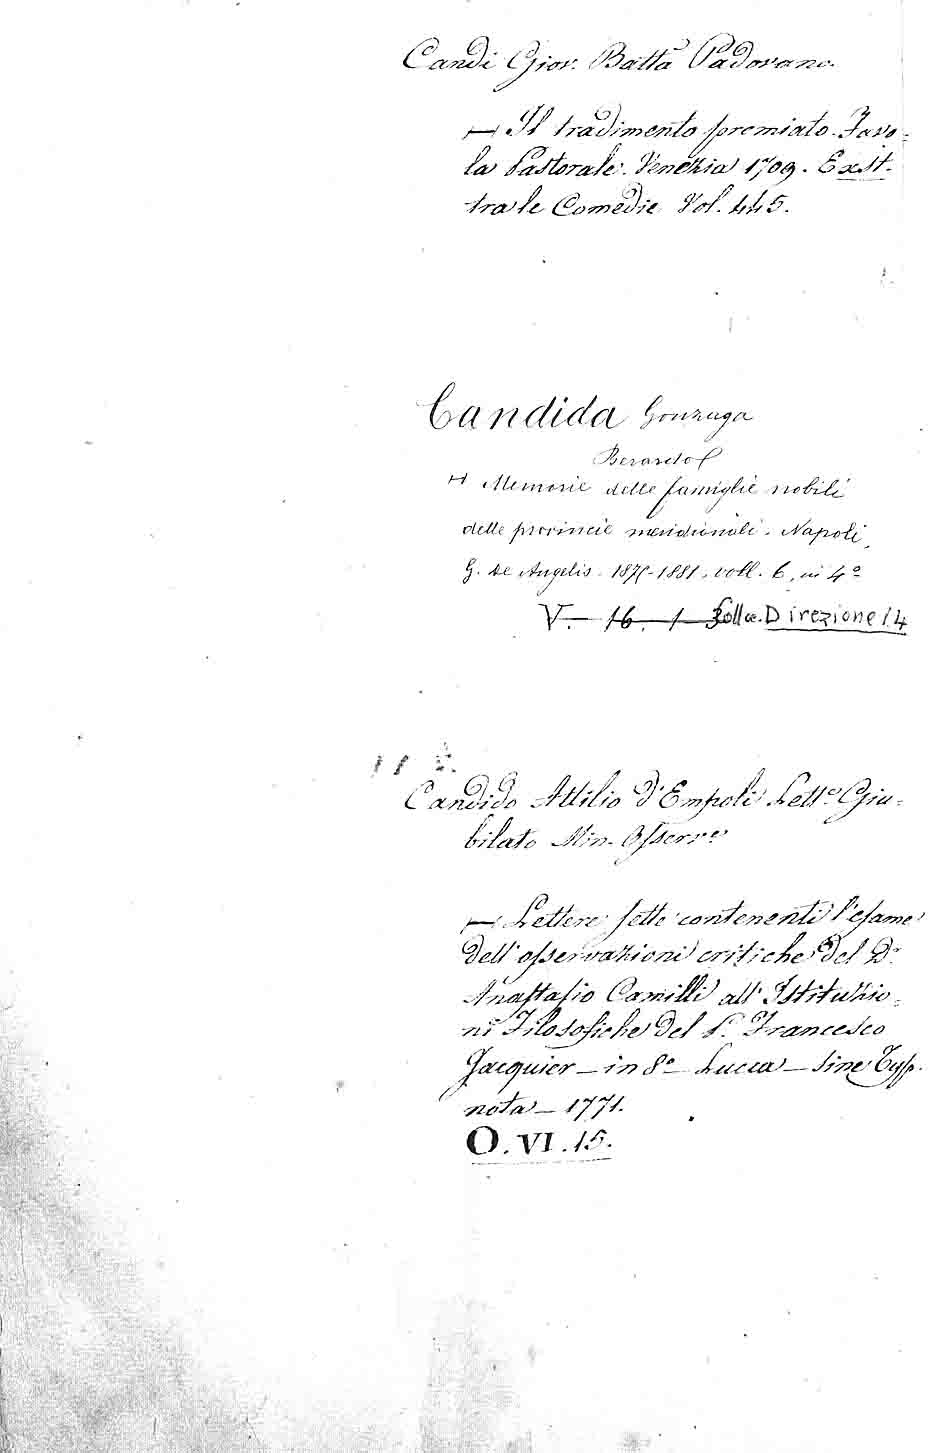 Candi Giov. Batta Padovano.
— Il tradimento premiato. Favo=
la Pastorale. Venezia 1709. Exst.
tra le Comedie Vol. 445.
Candida Gonzaga
Berardo
Memorie delle famiglie nobili
delle provincie meridionali. Napoli,
G. De Angelis. 1875-1881. voll. 6, in 4º
V. 16. 1 3 Colloc. Direzione 1.4
Candido Attilio d'Empoli Lettº Giu=
bilato Min. Osserv.e
— Lettere sette contenenti l'esame
dell'osservazioni critiche del Dr.
Anastasio Camilli all'Istituzio=
ni Filosofiche del P. Francesco
Jacquier — in 8º — Lucca — sine Typ.
nota — 1771.
O. VI. 15.